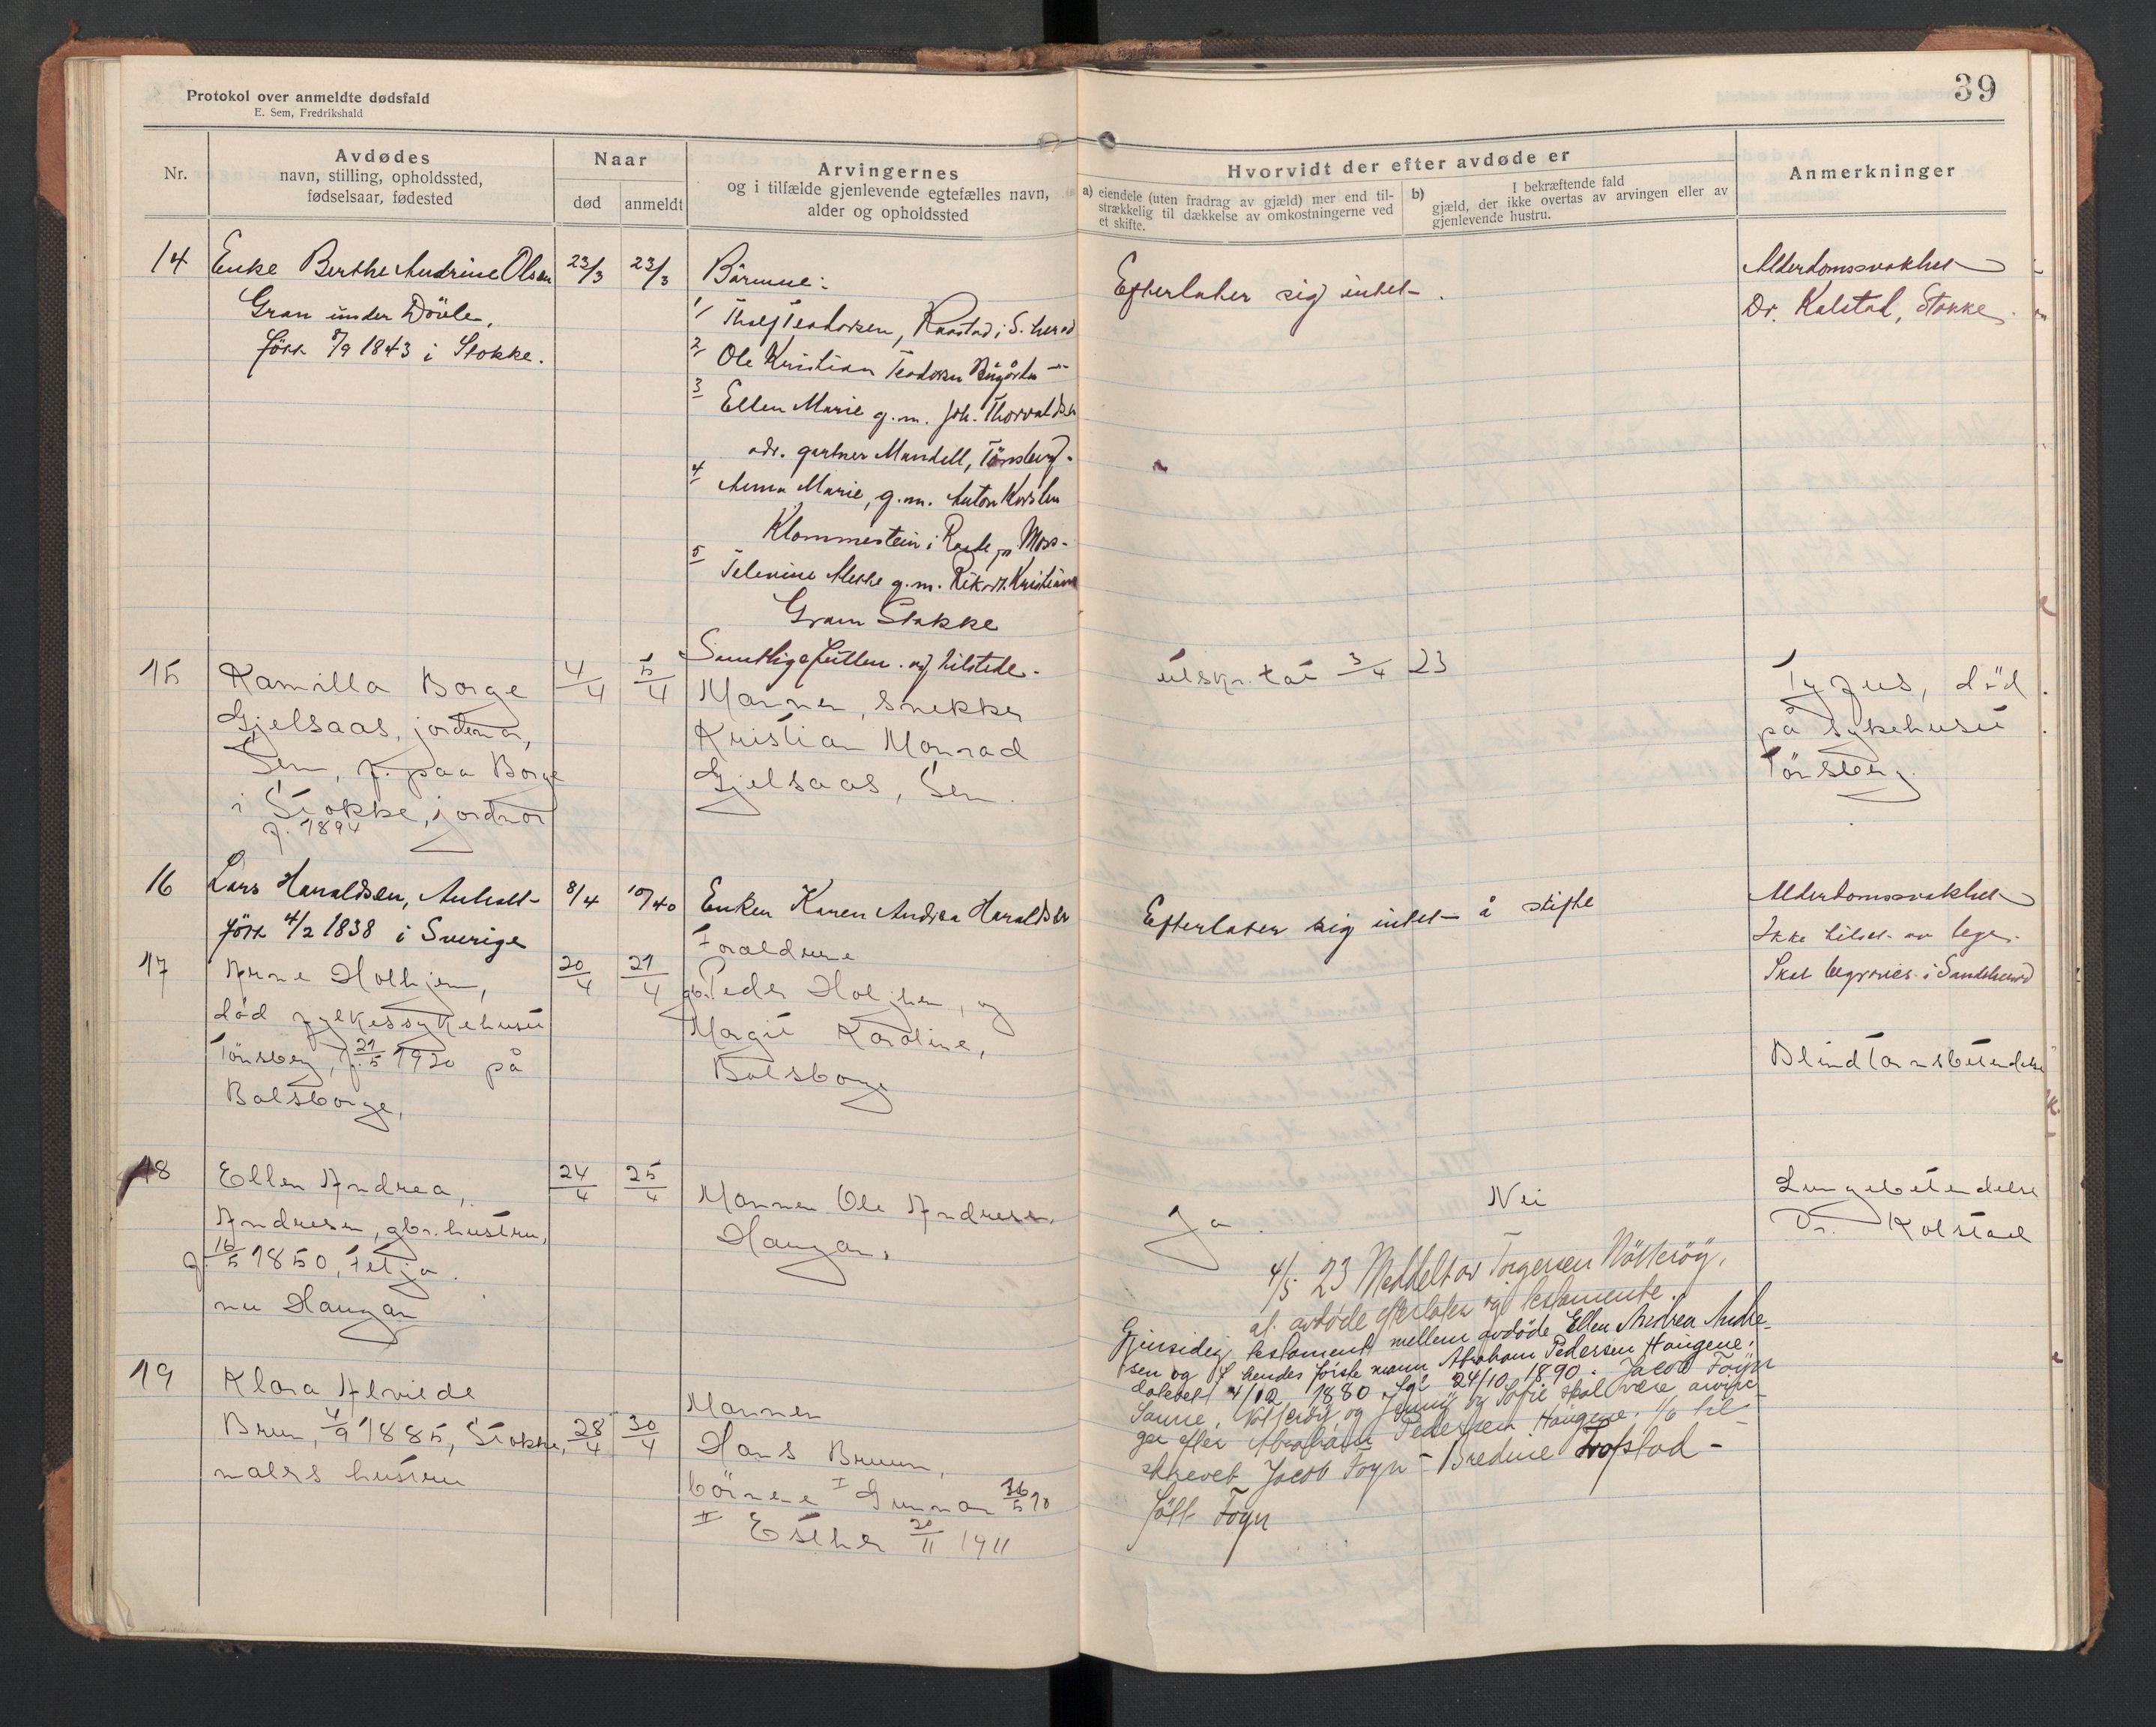 Protokol over anmeldte dødsfald
E. Sem, Fredrikshald
39
Nr.
Avdødes
navn, stilling, opholdssted,
fødselsaar, fødested
Naar
død
anmeldt
Arvingernes
og i tilfælde gjenlevende egtefælles navn,
alder og opholdssted
Hvorvidt der efter avdøde er
a) eiendele (uten fradrag av gjæld) mer end til-
strækkelig til dækkelse av omkostningerne ved
et skifte.
b) I bekræftende fald
gjæld, der ikke overtas av arvingen eller av
gjenlevende hustru.
Anmerkninger
14
Enke Berthe Andrine Olsen
Gran under Døvle,
født 8/9 1843 i Stokke.
23/3
23/3
Børnene:
1/ Teodorsen, Raastad i S. herad
2/ Ole Kristian Teodorsen
3 Ellen Marie g.m. Joh. Thorvaldsen
adr. gartner Mandell, Tønsberg.
4 Anna Marie, g.m. Anton Karlsen
Klommestein i Rade pr Moss.
5 g.m. Rikard Kristians
Gran Stokke
Samtlige fuldm. og tilstede.
Efterlater sig intet.
Alderdomssvakhet
Dr. Kolstad, Stokke.
15
Kamilla Borge
Gjelsaas, jordmor,
Sem, f. paa Borge
i Stokke, jordmor
f. 1894
4/4
5/4
Mannen, snekker
Kristian Monrad
Gjelsaas, Sem.
utskr. tat 3/4 23
Tyfus, död
på sykehuset
Tønsberg.
16
Lars Haraldsen, Anholt
født 4/2 1838 i Sverige
8/4
10/40
Enken Karen Andrea Haraldsen
Efterlater sig intet å skifte
Alderdomssvakhet
Ikke tilset av læge.
Skal begraves i Sandeherred
17
Arne Holtjen,
død fylkessykehuset
Tønsberg, f. 21/5 1920 på
Bolsborge,
20/4
21/4
Foraldrene
gbr. Peder Holtjen, og
Margit Karoline,
Bolsborge
Blindtarmsbetendelse
18
Ellen Andrea,
Andresen, gbr. hustru,
f. 16/5 1850, Fetja.
nu Haugan
24/4
25/4
Mannen Ole Andresen.
Haugan,
Ja.
Nei
Lungebetendelse
Dr. Kolstad
4/5 23 Meddelt av Torgersen Nötterøy,
at avdøde efterlater sig testamente.
Gjensidig testament mellem avdöde Ellen Andrea Andre-
sen og hendes første mann Abraham Pedersen Haugene.
datert 4/12 1880 og 24/10 1890. Jacob Foyn
Sanne, Nötteröy og Jenny og Sofie skal være arvin-
ger efter Abraham Pedersen Haugene. 1/6 til-
skrevet Jacob Foyn - Bredine Trofstad -
Foyn
19
Klara Alvilde
Brun, 4/9 1885, Stokke,
malers hustru
28/4
30/4
Mannen
Hans Bruun,
börnene I Gunnar 16/5 10
II Esther 20/11 1911